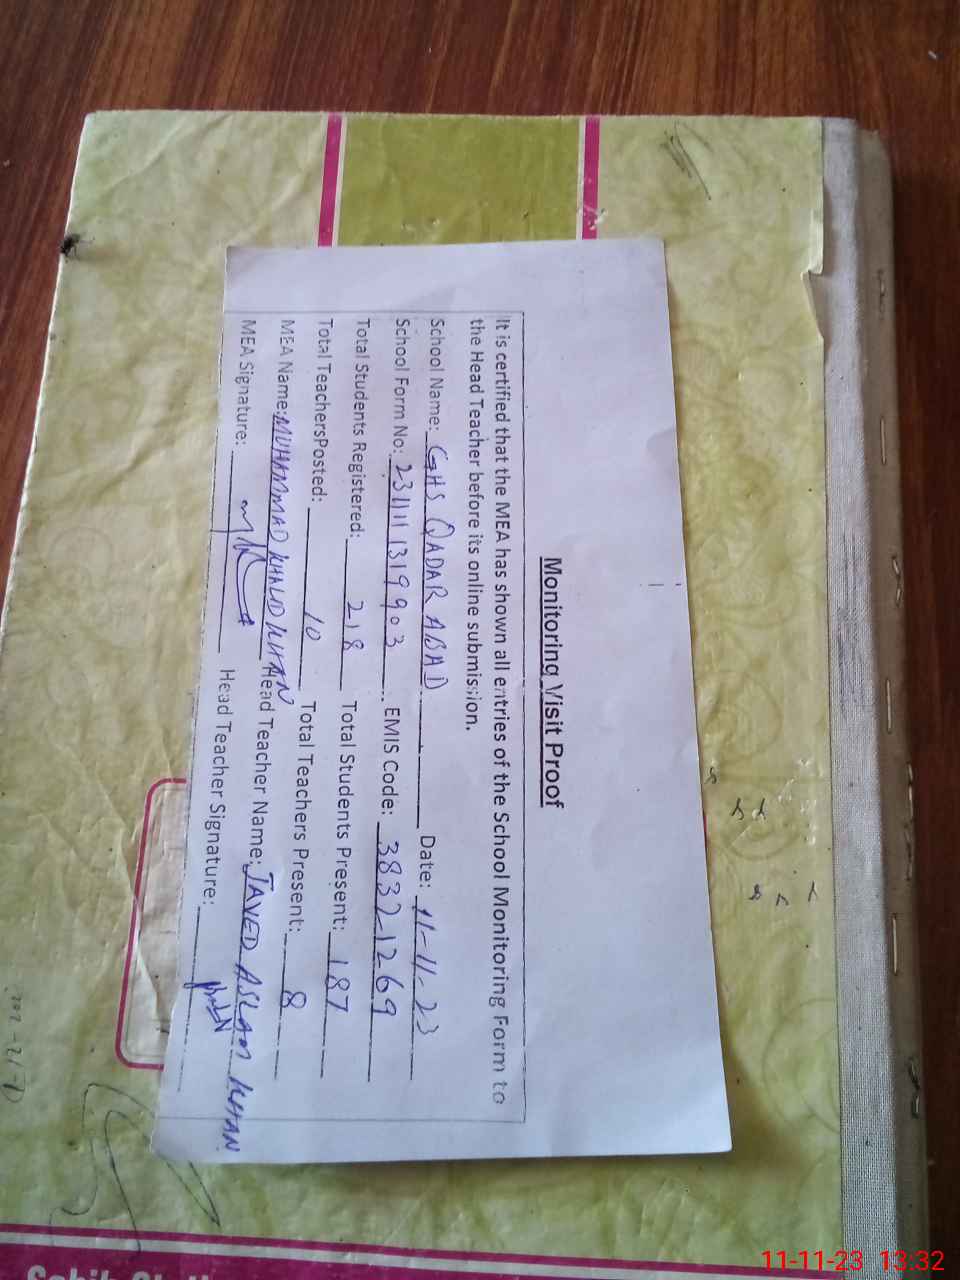 Monitoring Visit Proof
It is certified that the MEA has shown all entries of the School Monitoring Form to
the Head Teacher before its online submission.
School Name: GHS QADAR ABAD Date: 11-11-23
School Form No: 231111319903 EMIS Code: 38321269
Total Students Registered: 218 Total Students Present: 187
Total TeachersPosted: 10 Total Teachers Present: 8
MEA Name: MUHAMMAD KHALID KHAN Head Teacher Name: JAVED ASLAM KHAN
MEA Signature: Head Teacher Signature:
11-11-23 13:32